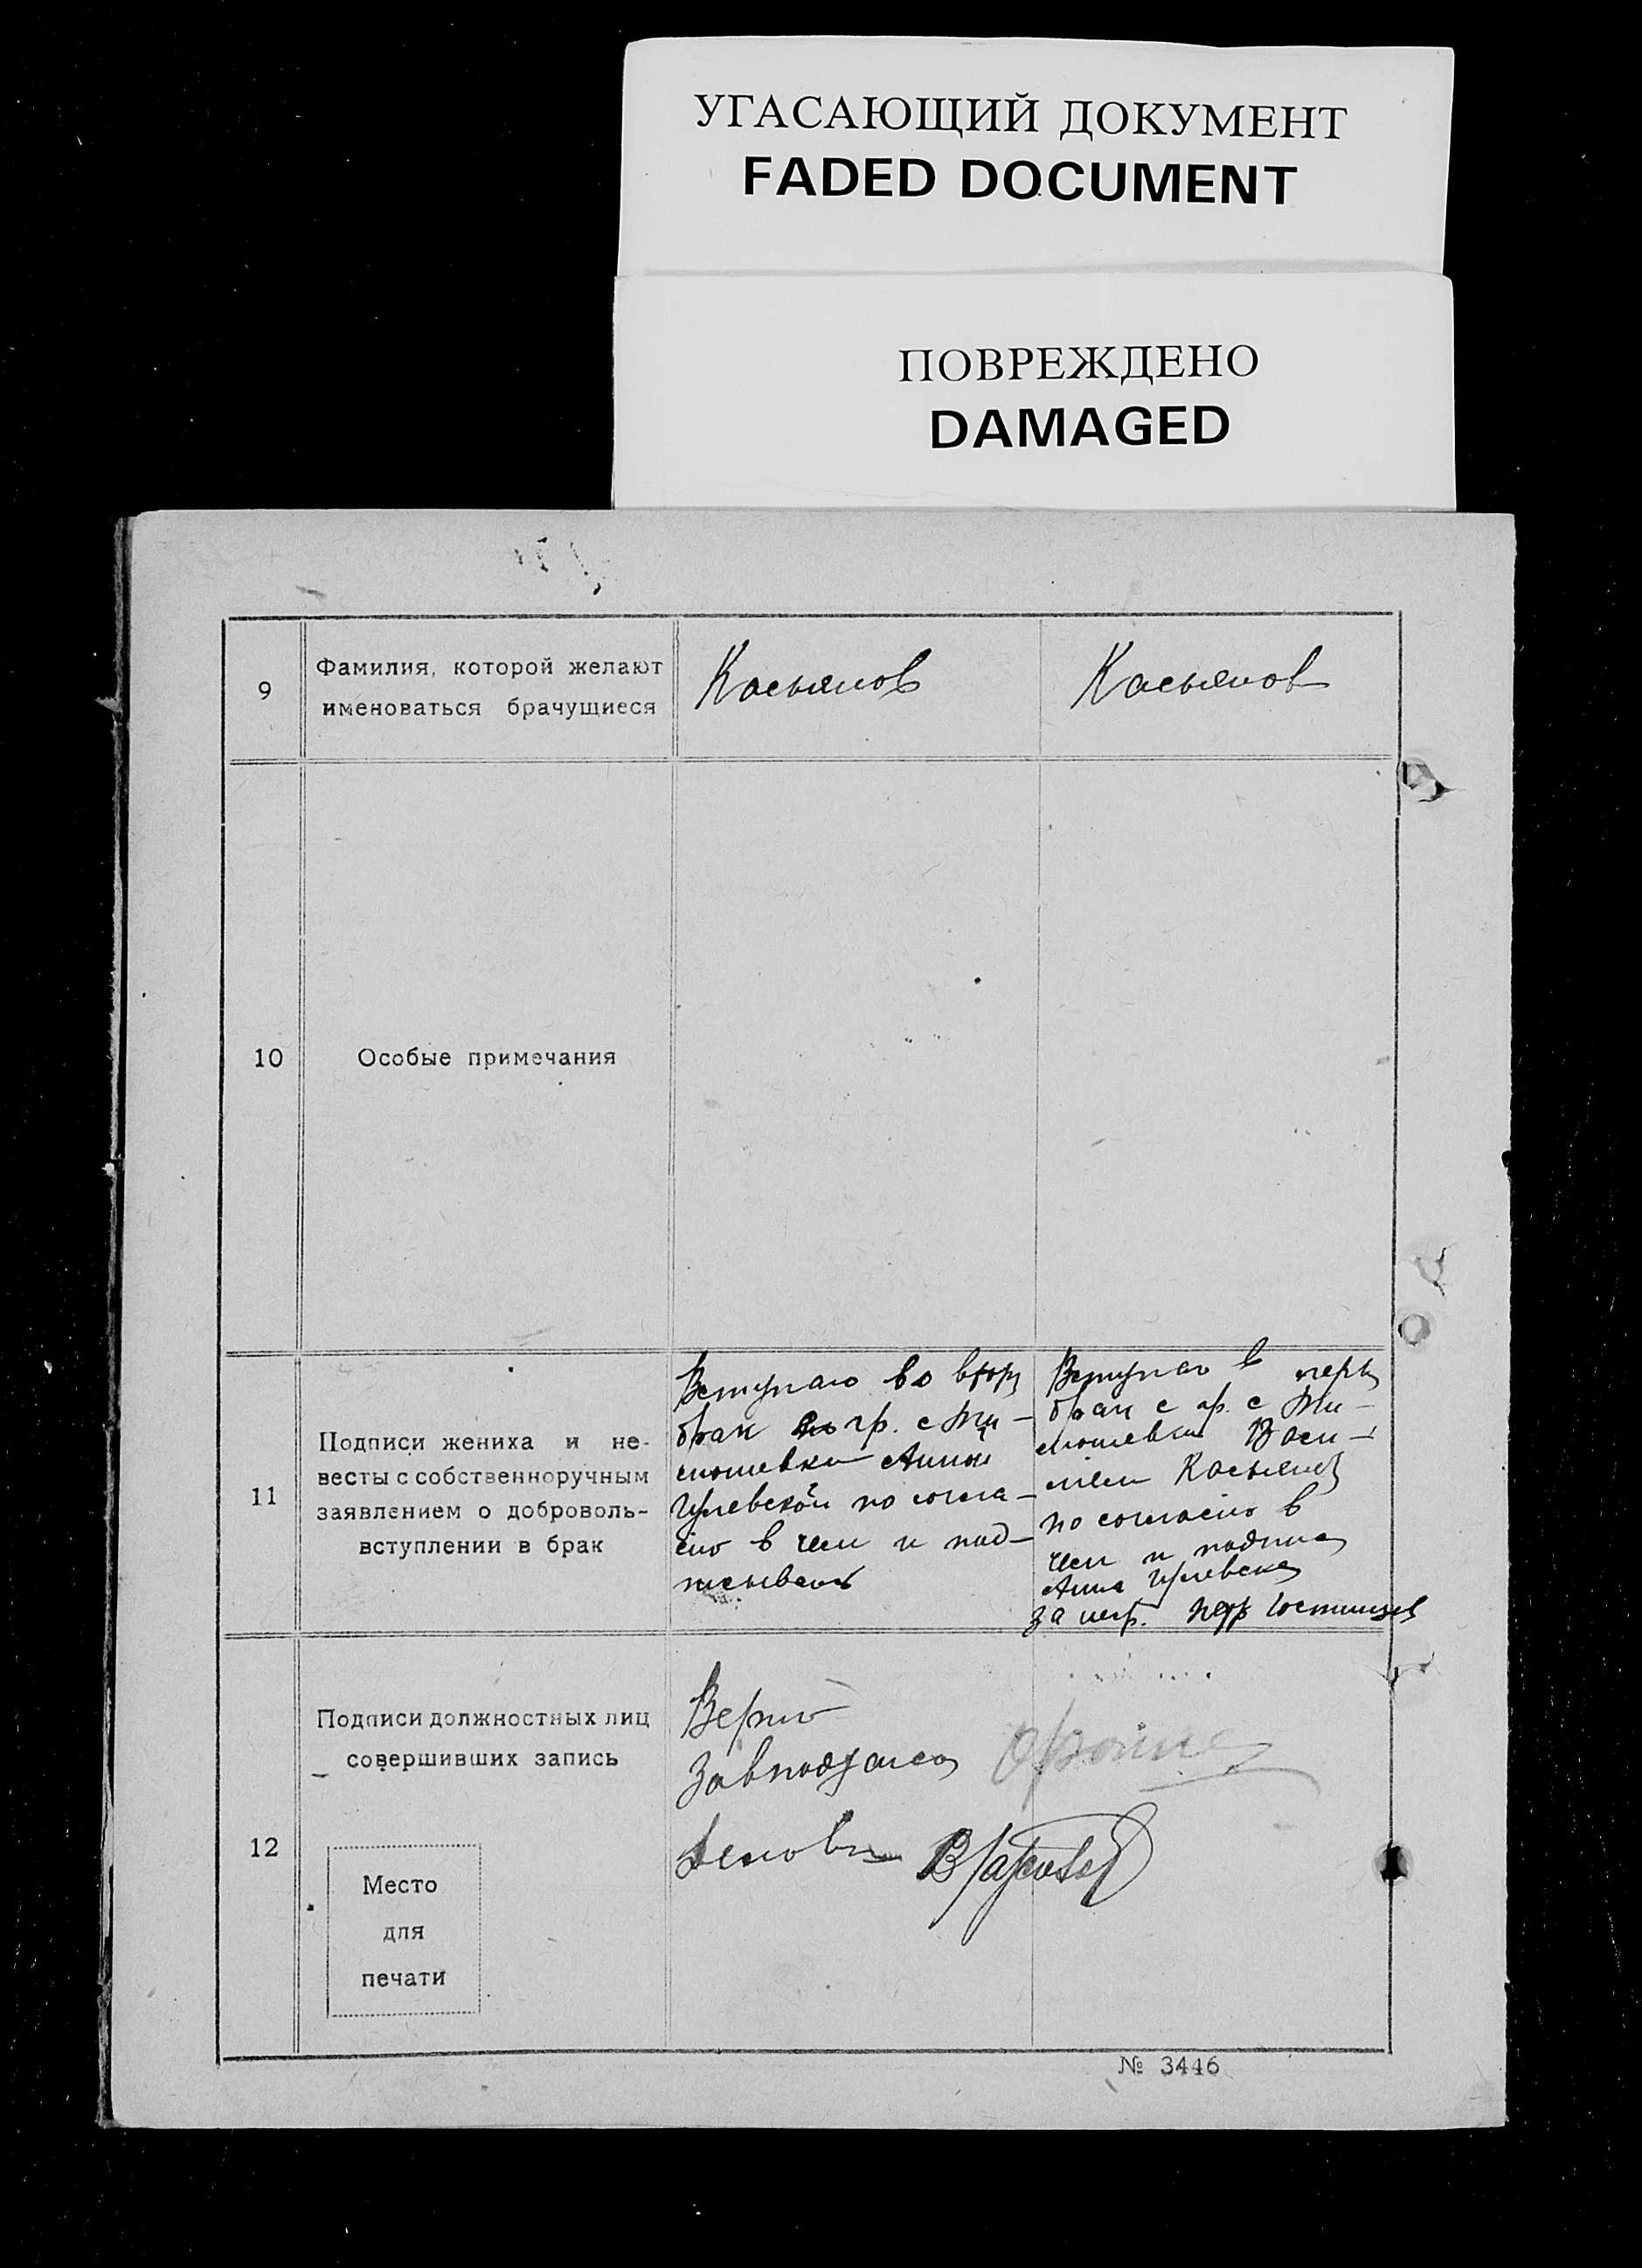 УГАСАЮЩИЙ ДОКУМЕНТ
FADED DOCUMENT
ПОВРЕЖДЕНО
DAMAGED
9
Фамилия, которой желают
именоваться брачущиеся
Касьянов
Касьянов
10
Особые примечания
11
Подписи жениха и не-
весты с собственноручным
заявлением о доброволь-
вступлении в брак
Вступаю во втор
брак гр. с Ти-
мошевки Анной
по согла-
сно в чем и под-
писываюсь
Вступаю в перв
брак с гр. с Ти-
мошевки Васи-
лием Касьянов
по согласно в
чем и подпис
Анна
за негр.
12
Подписи должностных лиц
совершивших запись
Верно
Завподзагса
Место
для
печати
№ 3446